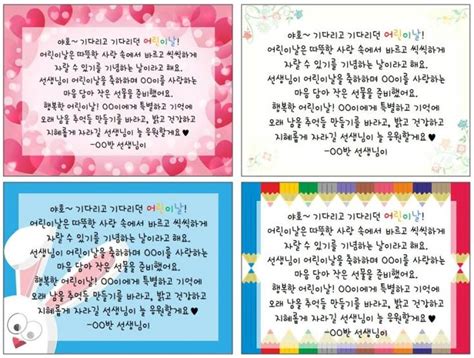 야호~ 기다리고 기다리던 어린이날!
어린이날은 따뜻한 사랑 속에서 바르고 씩씩하게
자랄 수 있기를 기념하는 날이라고 해요.
선생님이 어린이날을 축하하며 OO이를 사랑하는
마음 담아 작은 선물을 준비했어요.
행복한 어린이날! OO이에게 특별하고 기억에
오래 남을 추억들 만들기를 바라고, 밝고 건강하고
지혜롭게 자라길 선생님이 늘 응원할게요♥
-OO반 선생님이
야호~ 기다리고 기다리던 어린이날!
어린이날은 따뜻한 사랑 속에서 바르고 씩씩하게
자랄 수 있기를 기념하는 날이라고 해요.
선생님이 어린이날을 축하하며 OO이를 사랑하는
마음 담아 작은 선물을 준비했어요.
행복한 어린이날! OO이에게 특별하고 기억에
오래 남을 추억들 만들기를 바라고, 밝고 건강하고
지혜롭게 자라길 선생님이 늘 응원할게요♥
-OO반 선생님이
야호~ 기다리고 기다리던 어린이날!
어린이날은 따뜻한 사랑 속에서 바르고 씩씩하게
자랄 수 있기를 기념하는 날이라고 해요.
선생님이 어린이날을 축하하며 OO이를 사랑하는
마음 담아 작은 선물을 준비했어요.
행복한 어린이날! OO이에게 특별하고 기억에
오래 남을 추억들 만들기를 바라고, 밝고 건강하고
지혜롭게 자라길 선생님이 늘 응원할게요♥
-OO반 선생님이
야호~ 기다리고 기다리던 어린이날!
어린이날은 따뜻한 사랑 속에서 바르고 씩씩하게
자랄 수 있기를 기념하는 날이라고 해요.
선생님이 어린이날을 축하하며 OO이를 사랑하는
마음 담아 작은 선물을 준비했어요.
행복한 어린이날! OO이에게 특별하고 기억에
오래 남을 추억들 만들기를 바라고, 밝고 건강하고
지혜롭게 자라길 선생님이 늘 응원할게요♥
-OO반 선생님이